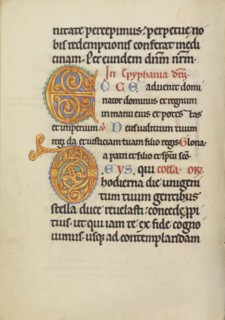 nitate percepimus: perpetue no
bis redemptionis conferat medi
cinam. Per eundem dnm nrm.
In Epyphania dni
ECCE advenit domi
nator dominus et regnum
in manu eius et potestas
et imperium. Ps Deus iudicium tuum
regi da et iusticiam tuam filio regis. Gloria
a patri et filio et spu sco.
DEUS, qui collecta. or.
hodierna die unigeni
tum tuum gentibus
stella duce revelasti: concede ppi
tius. ut qui iam te ex fide cogno
vimus. usq; ad contemplandam